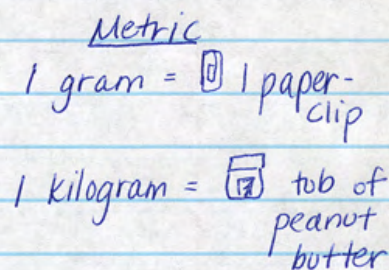 Metric
1 gram = 1 paper-
clip
1 kilogram = tob of
peanut
butter